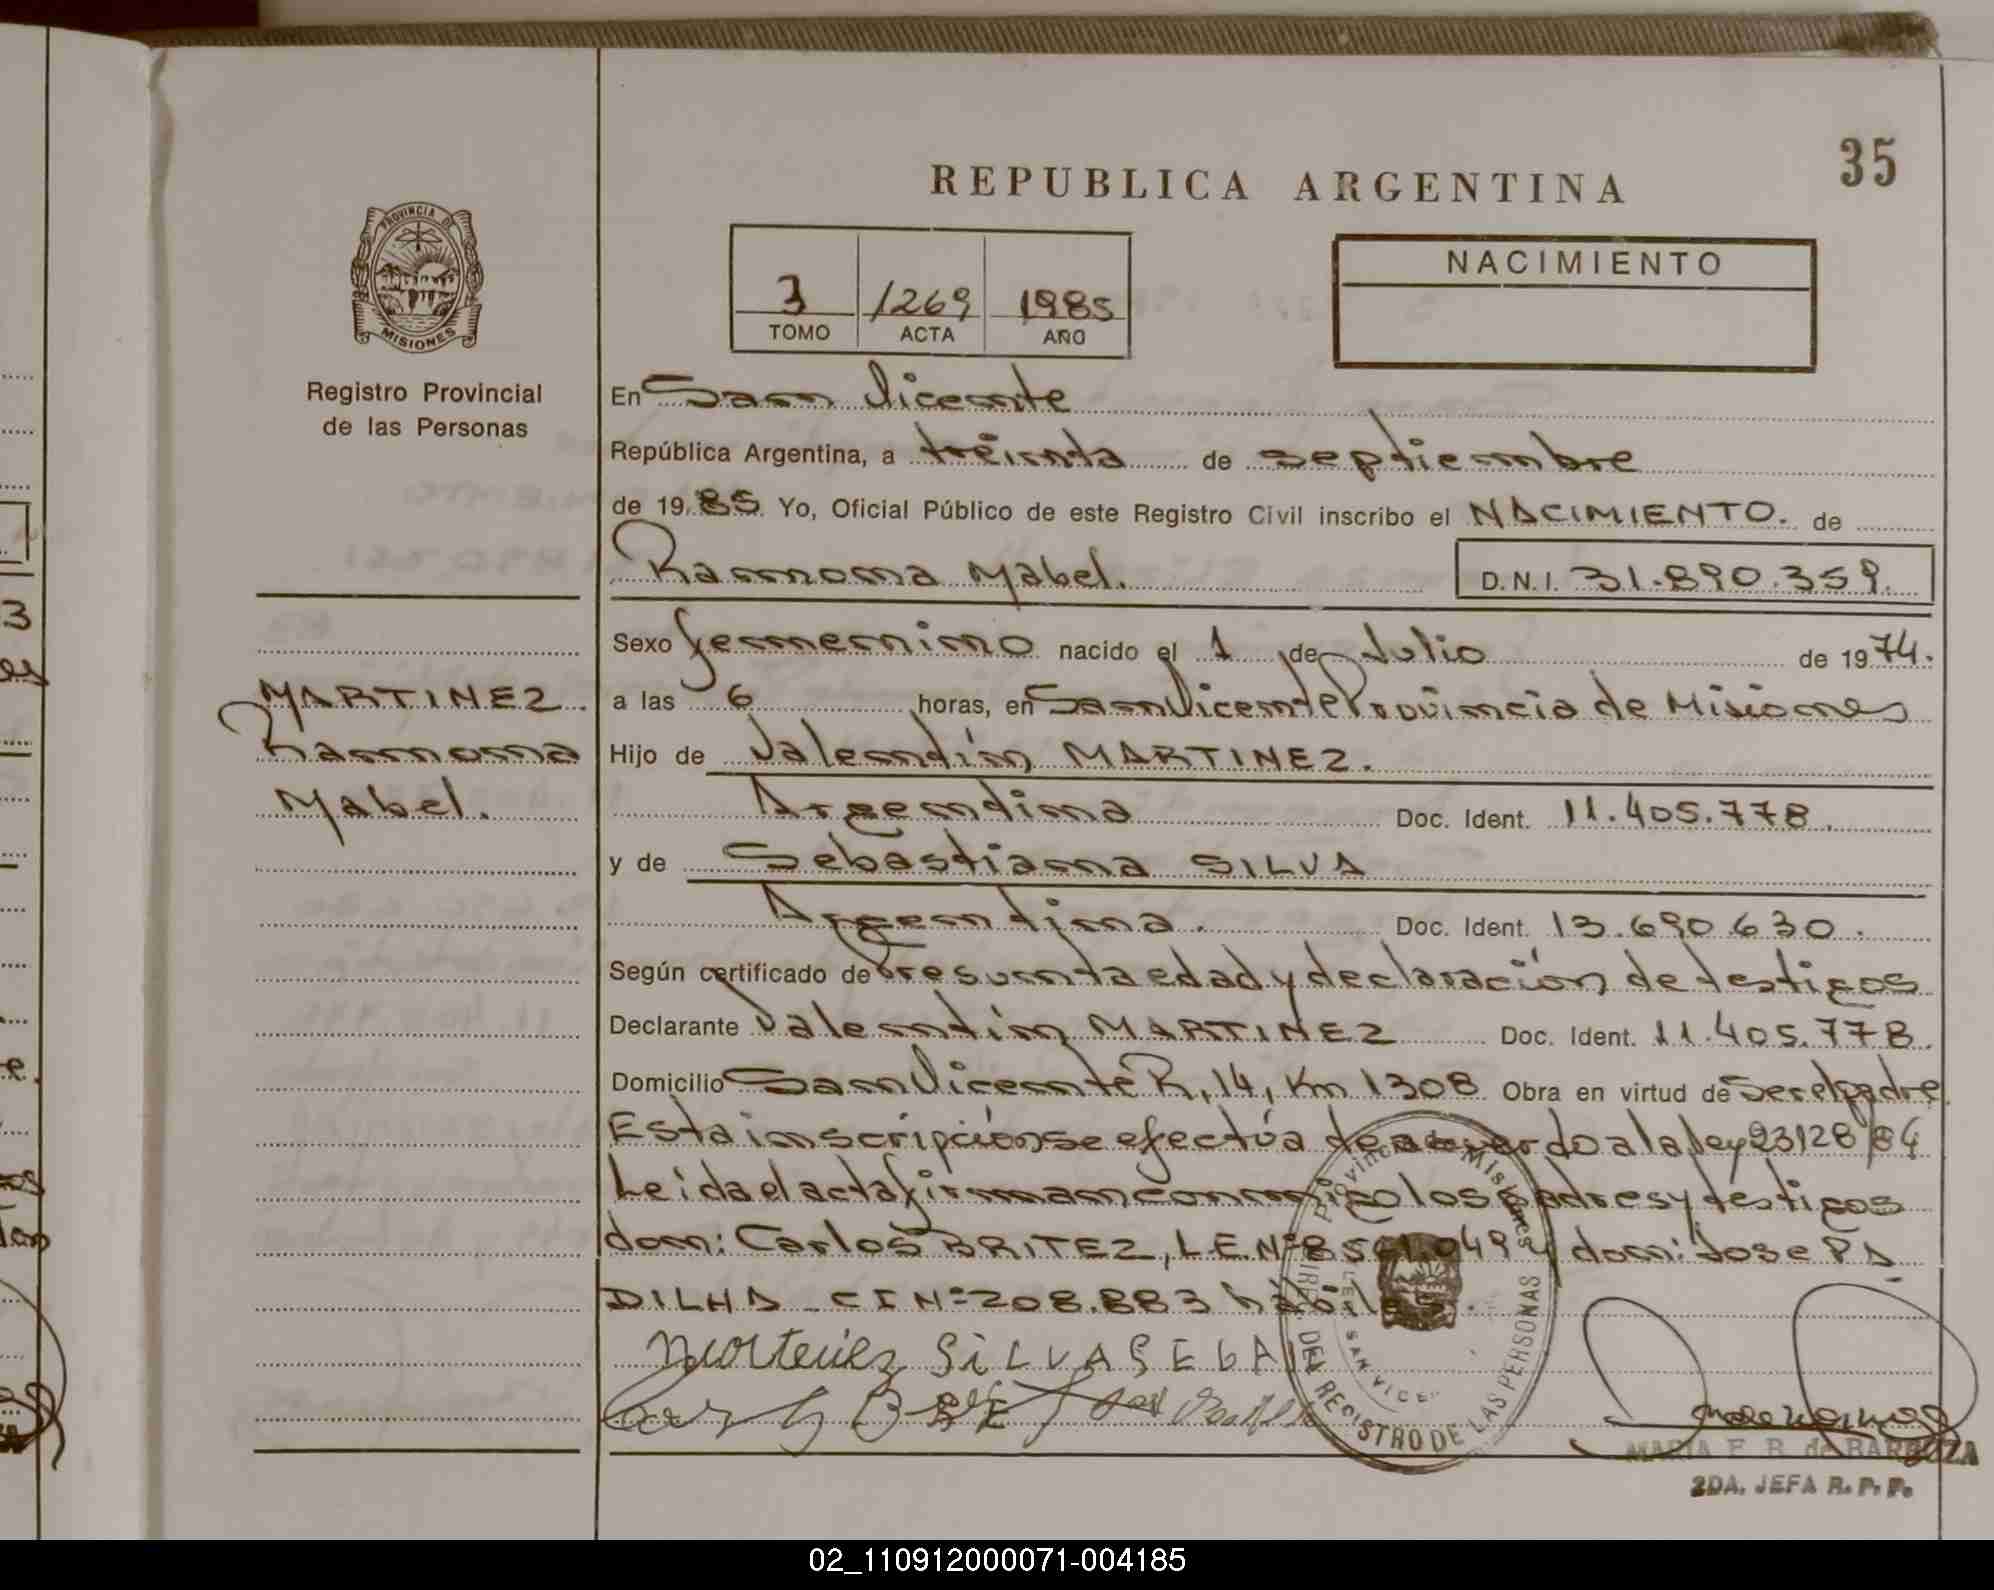 35
REPUBLICA ARGENTINA
PROVINCIA DE
MISIONES
Registro Provincial
de las Personas
3 1269 1985
TOMO ACTA AÑO
NACIMIENTO
En San Vicente
República Argentina, a treinta de septiembre
de 1985 Yo, Oficial Público de este Registro Civil inscribo el NACIMIENTO. de
Ramona Mabel. D.N.I. 31.890.359.
Sexo femenino nacido el 1 de Julio de 1974.
MARTINEZ.
Ramona
Mabel.
a las 6 horas, en San Vicente Provincia de Misiones
Hijo de Valentín MARTINEZ.
Argentina Doc. Ident. 11.405.778.
y de Sebastiana SILVA
Argentina. Doc. Ident. 13.690.630.
Según certificado de Presunta edad y declaración de testigos
Declarante Valentín MARTINEZ Doc. Ident. 11.405.778.
Domicilio San Vicente R, 14, Km 1308 Obra en virtud de Ser el padre
Esta inscripción se efectúa de acuerdo a la ley 23128/84
Leida el acta firman conmigo los padres y testigos
don: Carlos BRITEZ, L.E.Nº y don: Jose PA
DILHA - CI Nº 208.883 hábiles.
Martinez SILVA SEBA
Provincia de Misiones
DEL REGISTRO DE LAS PERSONAS
MARIA E. B. de BARBOZA
2DA. JEFA R. P. P.
02_110912000071-004185